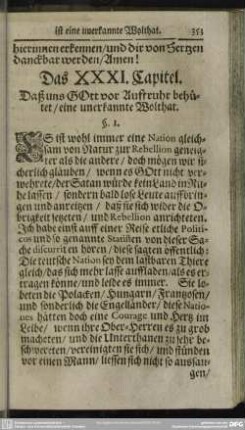 ist eine unerkannte Wolthat. 353
hierinnen erkennen/und dir von Hertzen
danckbar werden/Amen!
Das XXXI. Capitel.
Daß uns GOtt vor Auffruhr behü-
tet/eine unerkannte Wolthat.
§. 1.
ES ist wohl immer eine Nation gleich-
sam von Natur zur Rebellion geneig-
ter als die andere/ doch mögen wir si-
cherlich glauben/ wenn es GOtt nicht ver-
wehrete/der Satan würde kein Land in Ru-
he lassen/ sondern bald lose Leute auffbrin-
gen und anreitzen/ daß sie sich wider die O-
brigkeit setzeten/ und Rebellion anrichteten.
Ich habe einst auff einer Reise etliche Politi-
cos und so genante Statisten von dieser Sa-
che discurriren hören/ diese sagten öffentlich:
Die teutsche Nation sey dem lastbaren Thiere
gleich/ das sich mehr lasse aufladen/als es er-
tragen könne/und leide es immer. Sie lo-
beten die Polacken/ Hungarn/ Frantzosen/
und sonderlich die Engelländer/ diese Natio-
nes hätten doch eine Courage und Hertz im
Leibe/ wenn ihre Ober-Herren es zu grob
macheten/ und die Unterthanen zu sehr be-
schwereten/vereinigten sie sich/ und stünden
vor einen Mann/ liessen sich nicht so aussau-
gen/